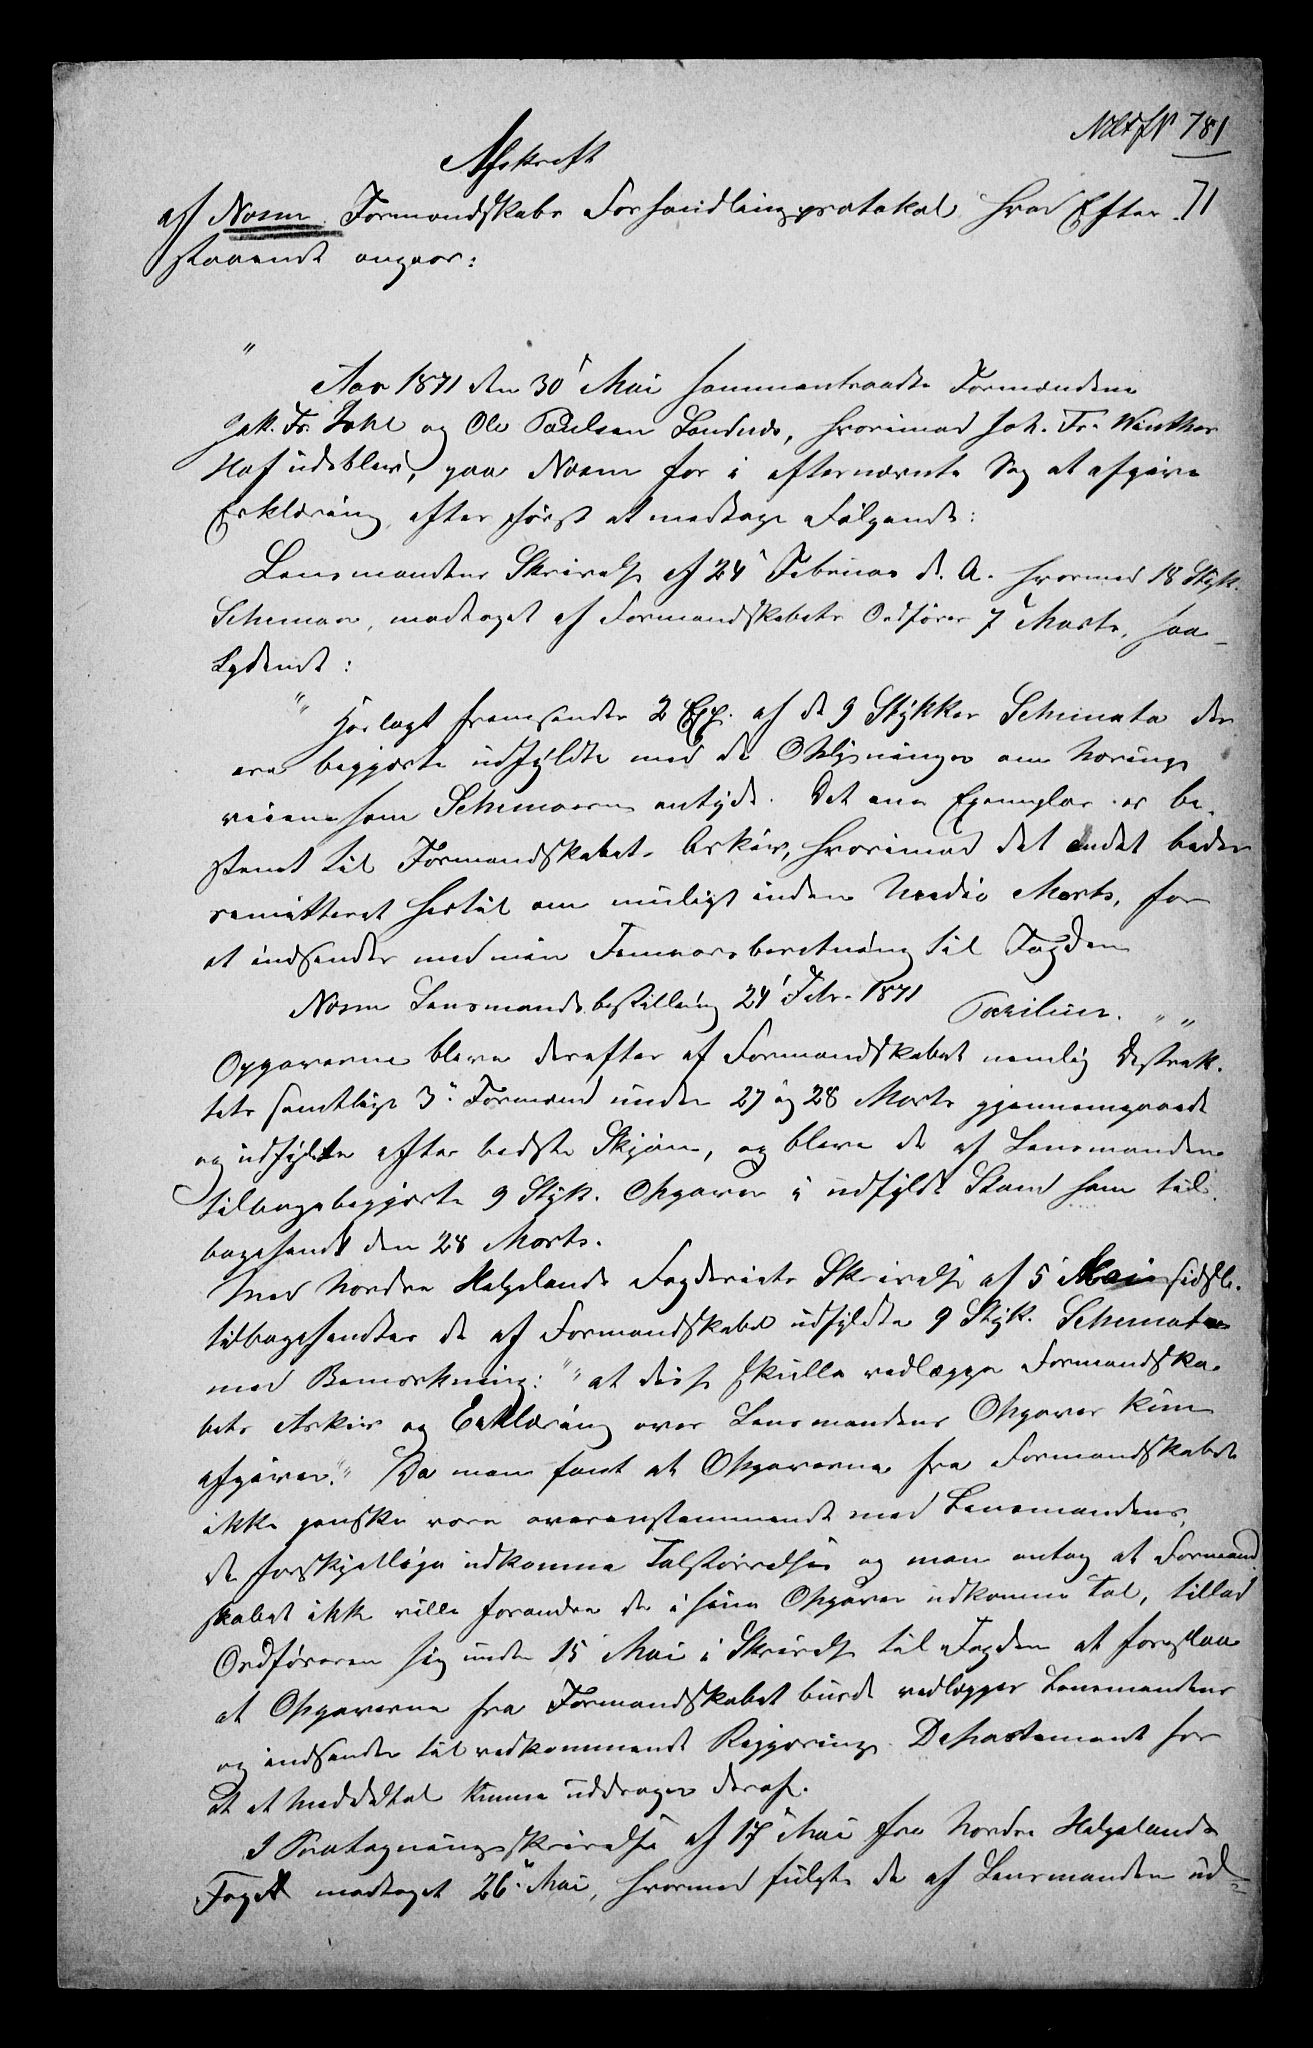 Afskrift
781
71
af Næsne Formandskabs Forhandlingsprotokol hvad Efter
staaende angaar:
" Aar 1871 den 30' Mai sammentraadte Formændene
Jak. Fr. Zahl og Ole Paulsen Sandnæs, hvorimod Joh. Fr. Winther
Hof udeblev, paa Næsne for i efternævnte Sag at afgive
Erklæring, efter først at modtage Følgende:
Lensmandens Skrivelse af 24' Februar d. A. hvormed 18 Styk.
Schemaer, modtaget af Formandskabets Ordfører 7' Marts, saa-
Lydende:
" Hoslagt fremsendes 2 Exp. af de 9 Stykker Schemata der
ere begjærte udfyldte med de Oplysninger om Nærings
veiene som Schemaerne antyde. Det ene Exemplar er be-
stemt til Formandskabets Arkiv, hvorimod det andet bedes
remitteret hertil om muligt inden Medio Marts, for
at indsendes med min Femaarsberetning til Fogden
Næsne Lensmandsbestilling 24' Febr. 1871 " "
Opgaverne bleve derefter af Formandskabet nemlig Distrik-
tets samtlige 3" Formænd under 27 og 28 Marts gjennemgaaede
og udfyldte efter bedste Skjøn, og bleve de af Lensmanden
tilbagebegjærte 9 Styk. Opgaver i udfyldt Stand ham til-
bagesendt den 28 Marts.
Med Nordre Helgelands Fogderiets Skrivelse af 5' Mai sidstl.
tilbagesendtes de af Formandskabet udfyldte 9 Styk. Schemata
med Bemærkning: "at disse skulle vedlægges Formandska-
bets Arkiv og Erklæring over Lensmandens Opgaver kun
afgives." Da man fant at Opgaverne fra Formandskabet
ikke ganske vare overenstemmende med Lensmandens,
de forskjellige udkomne Talstørrelser og man antog at Formand
skabet ikke ville forandre de i sine Opgaver udkomne Tal, tillod
Ordføreren sig under 15' Mai i Skrivelse til Fogden at foreslaa
at Opgaverne fra Formandskabet burde vedlægges Lensmandens
og indsendes til vedkommende Regjerings Departement for
at et Middeltal kunne uddrages deraf.
I Paategningsskrivelse af 17' Mai fra Nordre Helgelands
Foged modtaget 26" Mai, hvormed fulgte de af Lensmanden ud-